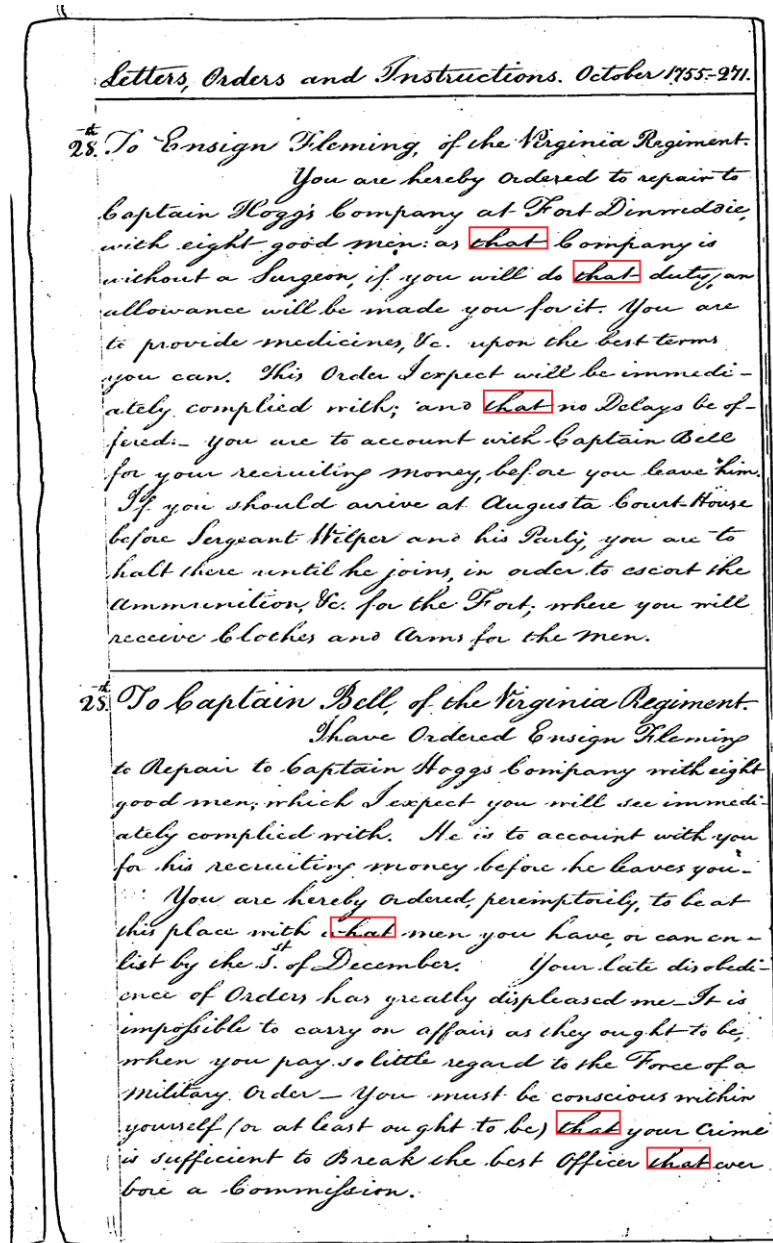 Letters, Orders and Instructions. October 1755.-271.
28.th To Ensign Fleming, of the Virginia Regiment.
You are hereby ordered to repair to
Captain Hogg's Company at Fort Dinwiddie,
with eight good men: as that Company is
without a Surgeon, if you will do that duty, an
allowance will be made you for it. You are
to provide medicines, &c. upon the best terms
you can. This Order I expect will be immedi-
ately complied with; and that no Delays be of-
fered:- you are to account with Captain Bell
for your recruiting money, before you leave him.
If you should arrive at Augusta Court-House
before Sergeant Wilper and his Party, you are to
halt there until he joins, in order to escort the
Ammunition, &c. for the Fort; where you will
receive Clothes and Arms for the men.
28.th To Captain Bell, of the Virginia Regiment.
I have Ordered Ensign Fleming
to Repair to Captain Hoggs Company with eight
good men; which I expect you will see immedi-
ately complied with. He is to account with you
for his recruiting money before he leaves you-
You are hereby ordered, peremptorily, to be at
this place with what men you have, or can en-
list by the 1.st of December. Your late disobedi-
ence of Orders has greatly displeased me_It is
impossible to carry on affairs as they ought to be,
when you pay so little regard to the Force of a
military Order_ You must be conscious within
yourself (or at least ought to be) that your Crime
is sufficient to Break the best Officer that ever
bore a Commission.